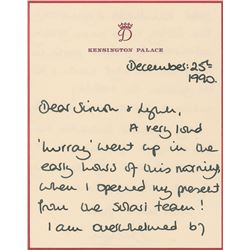 D
KENSINGTON PALACE
December: 25th
1990.
Dear Simon &
A very loud
'hurray' went up in the
early hours of this morning,
when I opened my present
from the team!
I am overwhelmed by